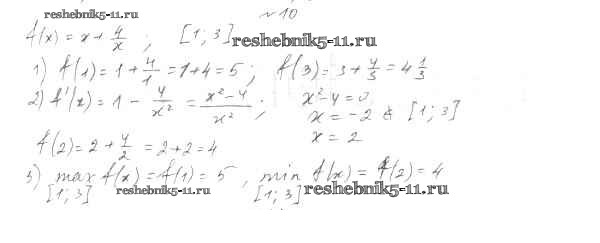 reshebnik5-11.ru
№10
f(x) = x + 4/x ; [1; 3] reshebnik5-11.ru
1) f(1) = 1 + 4/1 = 1+4 = 5 ; f(3) = 3 + 4/3 = 4 1/3
2) f'(x) = 1 - 4/x² = (x²-4)/x² ; x²-4=0
x = -2 ∉ [1; 3]
x = 2
f(2) = 2 + 4/2 = 2+2 = 4
3) max f(x) = f(1) = 5 , min f(x) = f(2) = 4
[1; 3] reshebnik5-11.ru [1; 3] reshebnik5-11.ru